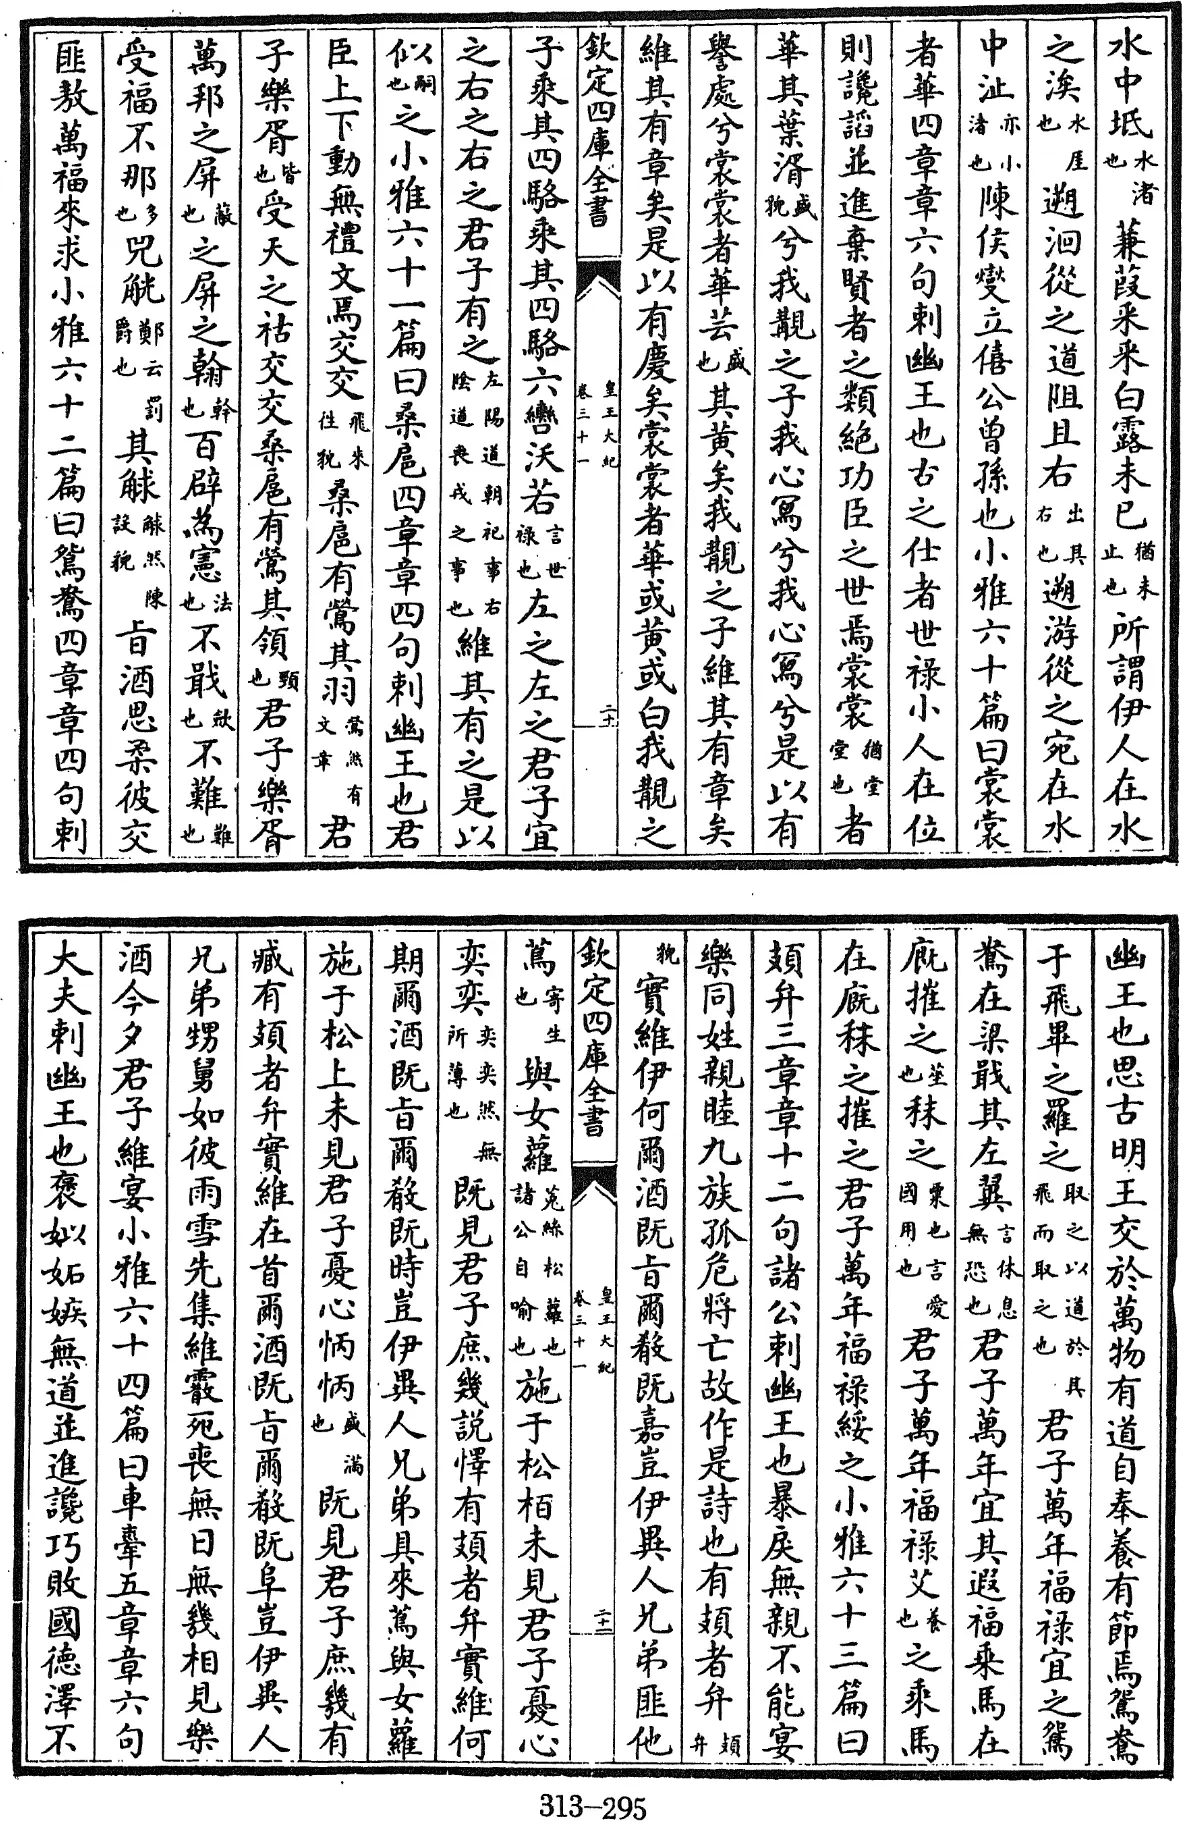 水中坻水渚也蒹葭采采白露未已猶未止也所謂伊人在水
之涘水厓也遡洄從之道阻且右出其右也遡游從之宛在水
中沚亦小渚也陳侯燮立僖公曾孫也小雅六十篇曰裳裳
者華四章章六句刺幽王也古之仕者世祿小人在位
則讒諂並進棄賢者之類絕功臣之世焉裳裳猶堂堂也者
華其葉湑盛貌兮我覯之子我心寫兮我心寫兮是以有
譽處兮裳裳者華芸盛也其黄矣我覯之子維其有章矣
維其有章矣是以有慶矣裳裳者華或黄或白我覯之
欽定四庫全書 皇王大紀卷三十一 二十
子乘其四駱乘其四駱六轡沃若言世祿也左之左之君子宜
之右之右之君子有之左陽道朝祀事右陰道喪戎之事也維其有之是以
似嗣也之小雅六十一篇曰桑扈四章章四句刺幽王也君
臣上下動無禮文焉交交飛來徃貌桑扈有鶯其羽鶯然有文章君
子樂胥皆也受天之祜交交桑扈有鶯其領頸也君子樂胥
萬邦之屏蔽也之屏之翰幹也百辟為憲法也不戢歛也不難難也
受福不那多也兕觥鄭云罰爵也其觩觩然陳設貌旨酒思柔彼交
匪敖萬福來求小雅六十二篇曰鴛鴦四章章四句刺
幽王也思古明王交於萬物有道自奉養有節焉鴛鴦
于飛畢之羅之取之以道於其飛而取之也君子萬年福祿宜之鴛
鴦在梁戢其左翼言休息無恐也君子萬年宜其遐福乘馬在
廐摧之莝也秣之粟也言愛國用也君子萬年福祿艾養也之乘馬
在廐秣之摧之君子萬年福祿綏之小雅六十三篇曰
頍弁三章章十二句諸公刺幽王也暴戾無親不能宴
樂同姓親睦九族孤危將亡故作是詩也有頍者弁頍弁
貌實維伊何爾酒既旨爾殽既嘉豈伊異人兄弟匪他
欽定四庫全書 皇王大紀卷三十一 二十一
蔦寄生也與女蘿莵絲松蘿也諸公自喻也施于松栢未見君子憂心
奕奕奕奕然無所薄也既見君子庶幾說懌有頍者弁實維何
期爾酒既旨爾殽既時豈伊異人兄弟具來蔦與女蘿
施于松上未見君子憂心怲怲盛滿也既見君子庶幾有
臧有頍者弁實維在首爾酒既旨爾殽既阜豈伊異人
兄弟甥舅如彼雨雪先集維霰死喪無日無幾相見樂
酒今夕君子維宴小雅六十四篇曰車舝五章章六句
大夫刺幽王也褒姒妬嫉無道並進讒巧敗國德澤不
313-295